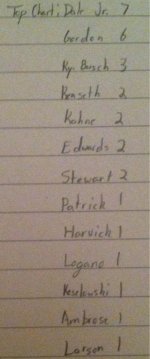 Top Chart: Dale Jr. 7
Gordon 6
Ky. Busch 3
Kenseth 2
Kahne 2
Edwards 2
Stewart 2
Patrick 1
Harvick 1
Logano 1
Keselowski 1
Ambrose 1
Larson 1